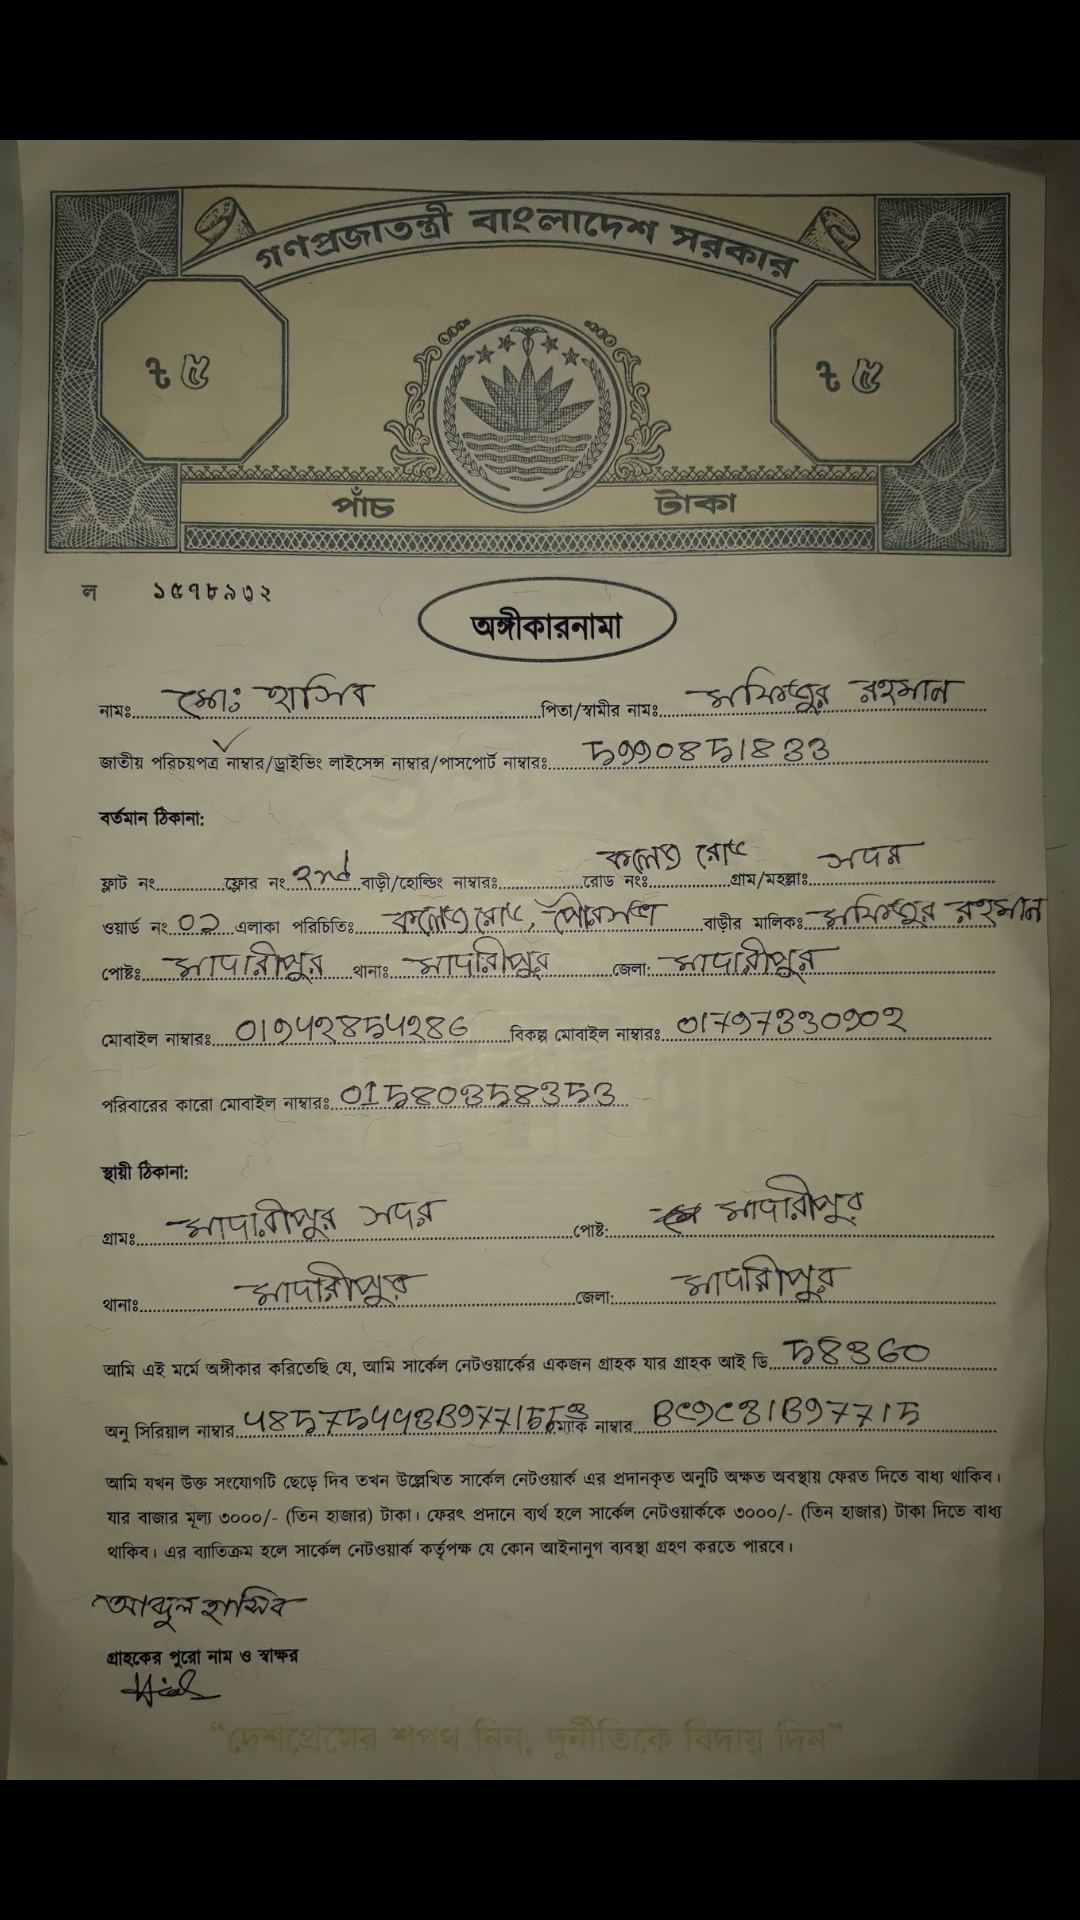 গণপ্রজাতন্ত্রী বাংলাদেশ সরকার
৳ ৫ ৳ ৫
পাঁচ টাকা
ল ১৫৭৮৯৩২
অঙ্গীকারনামা
নামঃ মোঃ হাসিব পিতা/স্বামীর নামঃ রহমান
জাতীয় পরিচয়পত্র নাম্বার/ড্রাইভিং লাইসেন্স নাম্বার/পাসপোর্ট নাম্বারঃ 5990851833
বর্তমান ঠিকানা:
ফ্লাট নং ফ্লোর নং 2nd বাড়ী/হোল্ডিং নাম্বারঃ রোড নংঃ কলেজ রোড গ্রাম/মহল্লাঃ সদর
ওয়ার্ড নং 02 এলাকা পরিচিতিঃ কলেজ রোড, পৌরসভা বাড়ীর মালিকঃ রহমান
পোষ্টঃ মাদারীপুর থানাঃ মাদারীপুর জেলা: মাদারীপুর
মোবাইল নাম্বারঃ 01942854286 বিকল্প মোবাইল নাম্বারঃ 01797330902
পরিবারের কারো মোবাইল নাম্বারঃ 01580358353
স্থায়ী ঠিকানা:
গ্রামঃ মাদারীপুর সদর পোষ্ট: মাদারীপুর
থানাঃ মাদারীপুর জেলা: মাদারীপুর
আমি এই মর্মে অঙ্গীকার করিতেছি যে, আমি সার্কেল নেটওয়ার্কের একজন গ্রাহক যার গ্রাহক আই ডি 58360
অনু সিরিয়াল নাম্বার ম্যাক নাম্বার BC9C31B97715
আমি যখন উক্ত সংযোগটি ছেড়ে দিব তখন উল্লেখিত সার্কেল নেটওয়ার্ক এর প্রদানকৃত অনুটি অক্ষত অবস্থায় ফেরত দিতে বাধ্য থাকিব।
যার বাজার মূল্য ৩০০০/- (তিন হাজার) টাকা। ফেরৎ প্রদানে ব্যর্থ হলে সার্কেল নেটওয়ার্ককে ৩০০০/- (তিন হাজার) টাকা দিতে বাধ্য
থাকিব। এর ব্যাতিক্রম হলে সার্কেল নেটওয়ার্ক কর্তৃপক্ষ যে কোন আইনানুগ ব্যবস্থা গ্রহণ করতে পারবে।
আব্দুল হাসিব
গ্রাহকের পুরো নাম ও স্বাক্ষর
“দেশপ্রেমের শপথ নিন, দুর্নীতিকে বিদায় দিন”